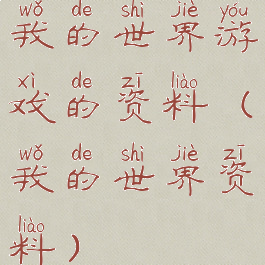 wǒ de shì jiè yóu
我的世界游
xì de zī liào
戏的资料（
wǒ de shì jiè zī
我的世界资
liào
料）